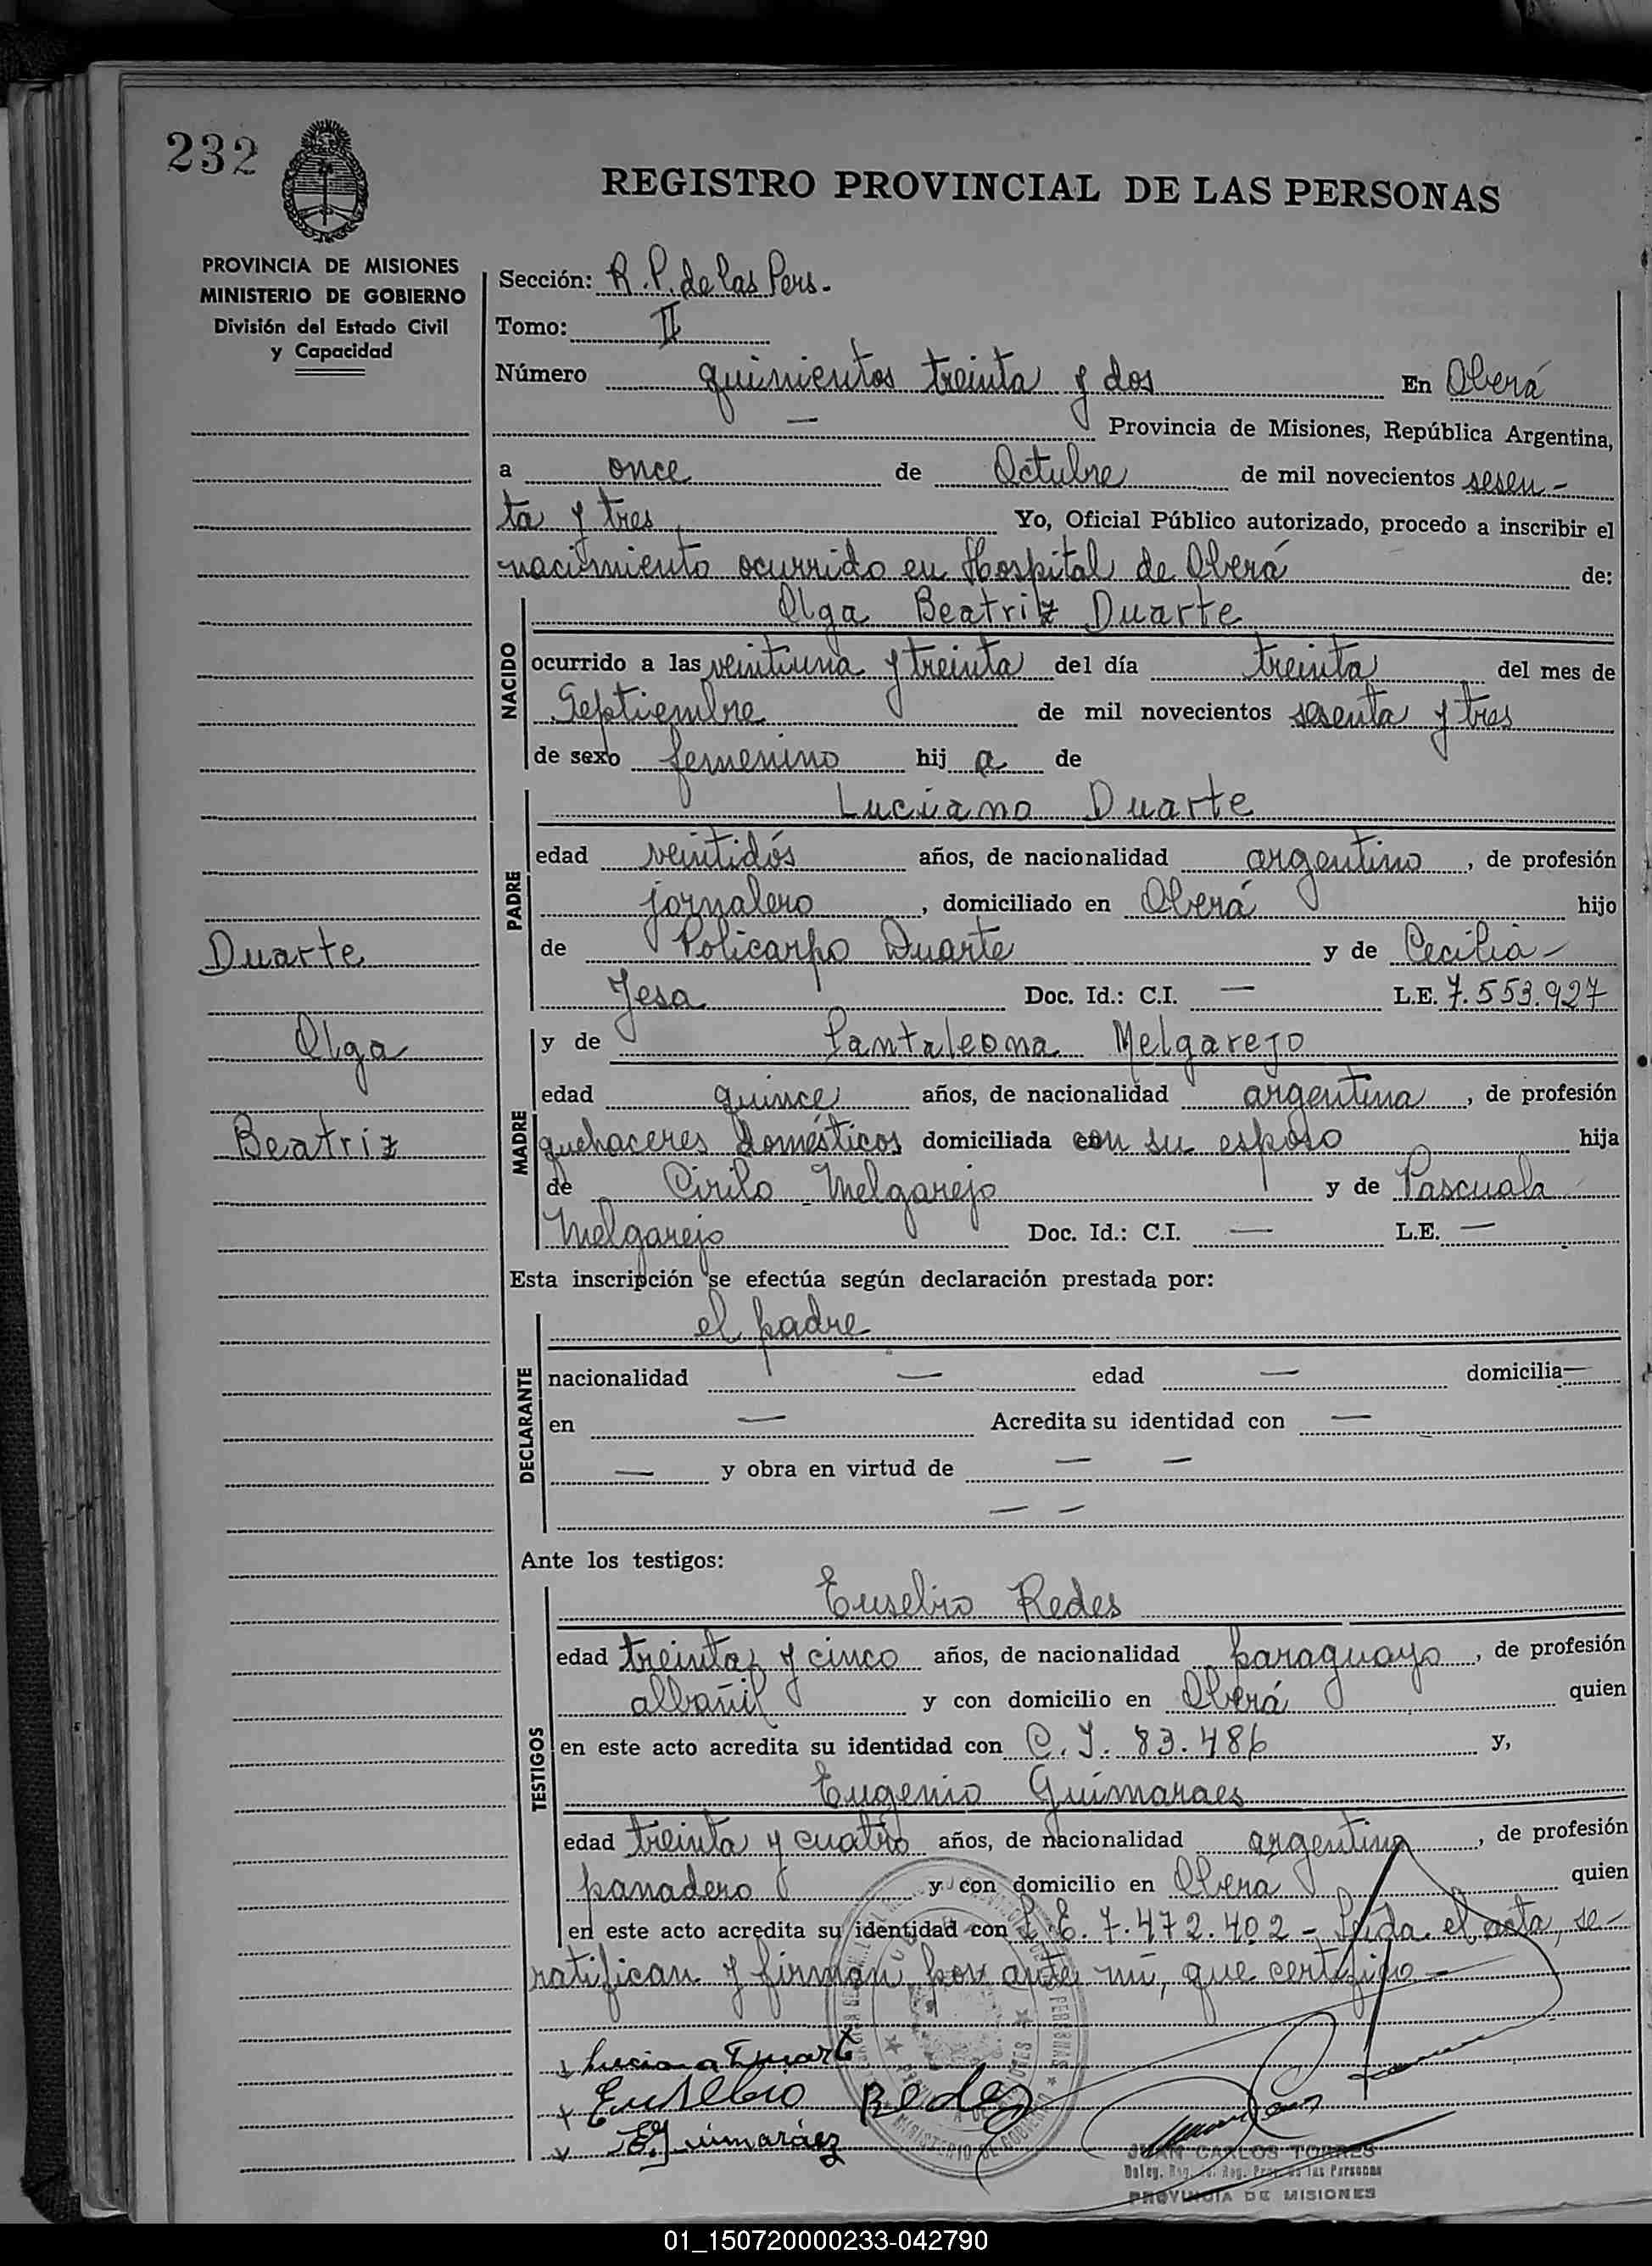 232
REGISTRO PROVINCIAL DE LAS PERSONAS
PROVINCIA DE MISIONES
MINISTERIO DE GOBIERNO
División del Estado Civil
y Capacidad
Sección: R. P. de las Pers.
Tomo: II
Número quinientos treinta y dos En Oberá
— Provincia de Misiones, República Argentina,
a once de Octubre de mil novecientos sesen-
ta y tres Yo, Oficial Público autorizado, procedo a inscribir el
nacimiento ocurrido en Hospital de Oberá de:
NACIDO
Olga Beatriz Duarte
ocurrido a las veintiuna y treinta del día treinta del mes de
Septiembre de mil novecientos sesenta y tres
de sexo femenino hij a de
PADRE
Luciano Duarte
edad veintidós años, de nacionalidad argentino, de profesión
jornalero, domiciliado en Oberá hijo
de Policarpo Duarte y de Cecilia -
Jesa Doc. Id.: C.I. — L.E. 7.553.927
Duarte
Olga
Beatriz
MADRE
y de Pantaleona Melgarejo
edad quince años, de nacionalidad argentina, de profesión
quehaceres domésticos domiciliada con su esposo hija
de Cirilo Melgarejo y de Pascuala
Melgarejo Doc. Id.: C.I. — L.E. —
Esta inscripción se efectúa según declaración prestada por:
DECLARANTE
el padre
nacionalidad — edad — domicilia—
en — Acredita su identidad con —
— y obra en virtud de — —
— —
Ante los testigos:
TESTIGOS
Eusebio Redes
edad treinta y cinco años, de nacionalidad paraguayo, de profesión
albañil y con domicilio en Oberá quien
en este acto acredita su identidad con C. I. 83.486 y,
Eugenio Guimaraes
edad treinta y cuatro años, de nacionalidad argentino, de profesión
panadero y con domicilio en Oberá quien
en este acto acredita su identidad con L. E. 7.472.402 - Leida el acta, se-
ratifican y firman por ante mi, que certifico -
Luciano Duarte
Eusebio Redes
E. Guimaráez
JUAN CARLOS TORRES
PROVINCIA DE MISIONES
01_150720000233-042790